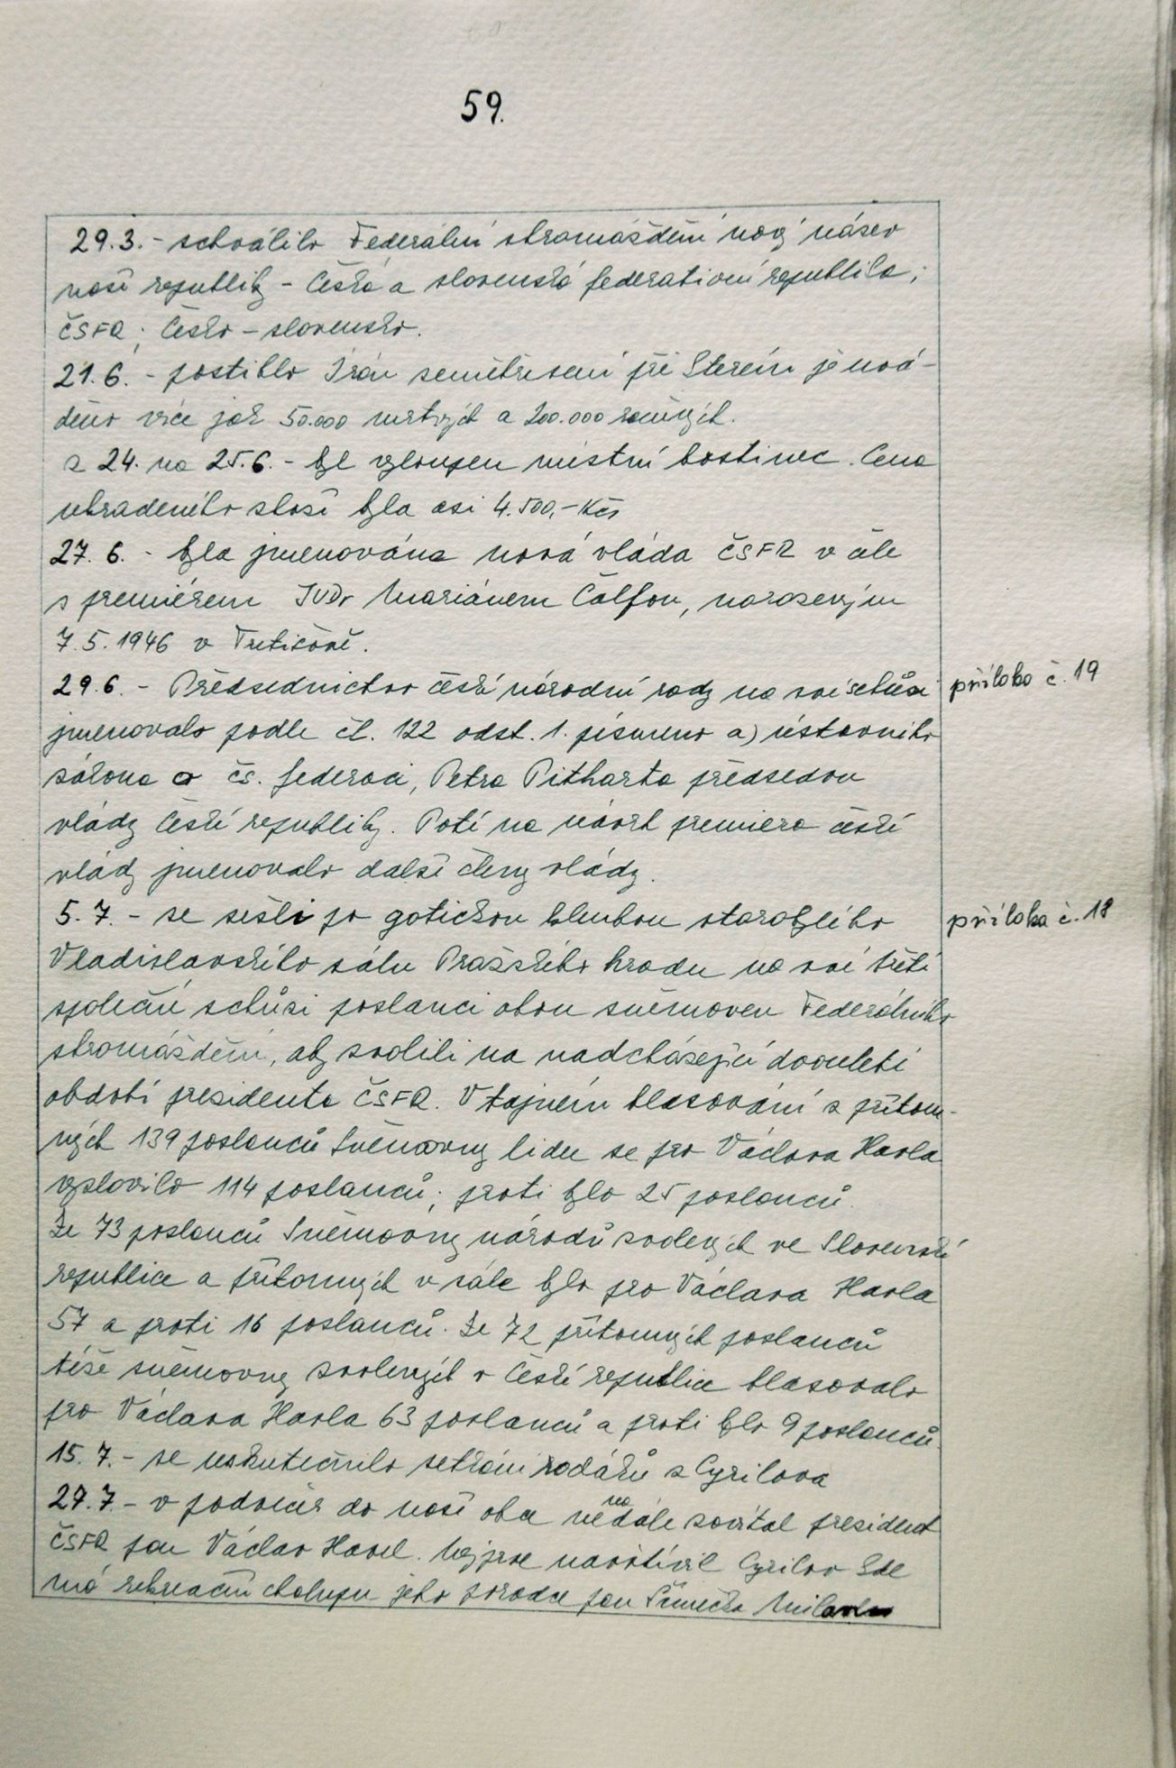 59.
29.3. - schválilo Federální shromáždění nový název
naší republiky - Česká a slovenská federativní republika;
ČSFR; Česko - slovensko.
21.6. - postihlo Írán zemětřesení při kterém je uvá-
děno více jak 50.000 mrtvých a 200.000 raněných.
z 24. na 25.6. - byl vyloupen místní hostinec. Cena
ukradeného zboží byla asi 4.500,- Kčs
27. 6. - byla jmenována nová vláda ČSFR v čele
s premiérem JUDr Mariánem Čalfou, narozeným
7.5.1946 v Trebišově.
29.6. - Předsednictvo české národní rady na své schůzi
příloha č. 19
jmenovalo podle čl. 122 odst. 1. písmeno a) ústavního
zákona o čs. federaci, Petra Pitharta předsedou
vlády České republiky. Poté na návrh premiéra české
vlády jmenovalo další členy vlády.
5. 7. - se sešli po gotickou klenbou starobylého
příloha č. 18
Vladislavského sálu Pražského hradu na své třetí
společné schůzi poslanci obou sněmoven Federálního
shromáždění, aby zvolili na nadcházející dvouleté
období presidenta ČSFR. V tajném hlasování z přítom-
ných 139 poslanců Sněmovny lidu se pro Václava Havla
vyslovilo 114 poslanců; proti bylo 25 poslanců.
Ze 73 poslanců Sněmovny národů zvolených ve Slovenské
republice a přítomných v sále bylo pro Václava Havla
57 a proti 16 poslanců. Ze 72 přítomných poslanců
téže sněmovny zvolených v České republice hlasovalo
pro Václava Havla 63 poslanců a proti bylo 9 poslanců.
15. 7. - se uskutečnilo setkání rodáků z Cyrilova
27.7. - v podvečer do naší obce nenadále zavítal president
ČSFR pan Václav Havel. Nejprve navštívil Cyrilov kde
má rekreační chalupu jeho poradce pan Šimečka Milan